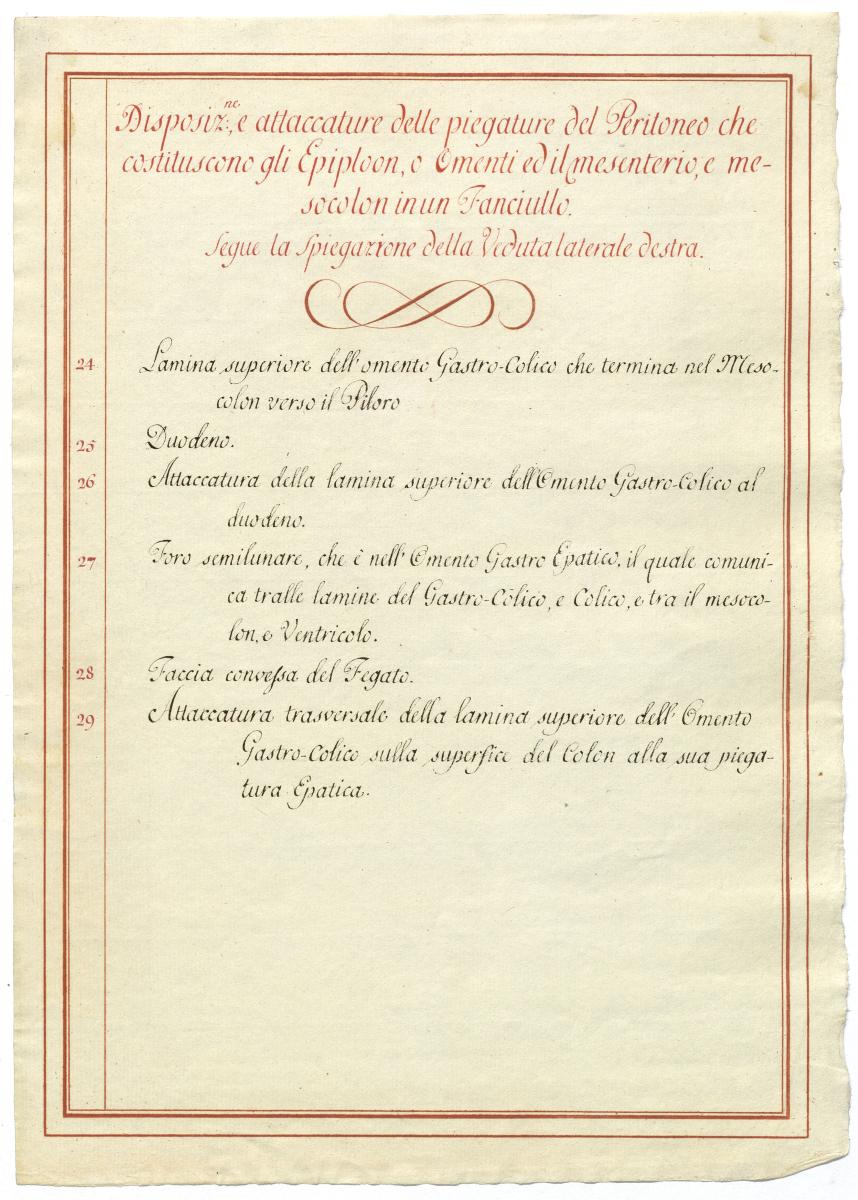 Disposiz:ne, e attaccature delle piegature del Peritoneo che
costituscono gli Epiploon, o Omenti ed il mesenterio, e me-
socolon in un Fanciullo.
Segue la Spiegazione della Veduta laterale destra.
24 Lamina superiore dell' omento Gastro-Colico che termina nel Meso-
colon verso il Piloro
25 Duodeno.
26 Attaccatura della lamina superiore dell' Omento Gastro-Colico al
duodeno.
27 Foro semilunare, che è nell' Omento Gastro Epatico, il quale comuni-
ca tralle lamine del Gastro-Colico, e Colico, e tra il mesoco-
lon, e Ventricolo.
28 Faccia convessa del Fegato.
29 Attaccatura trasversale della lamina superiore dell' Omento
Gastro-Colico sulla superfice del Colon alla sua piega-
tura Epatica.